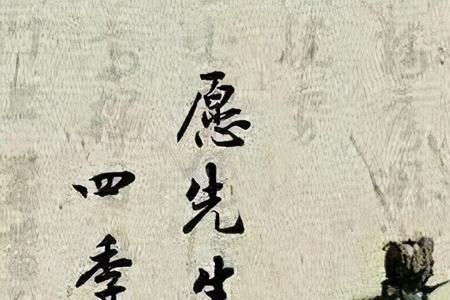 愿先生
四季